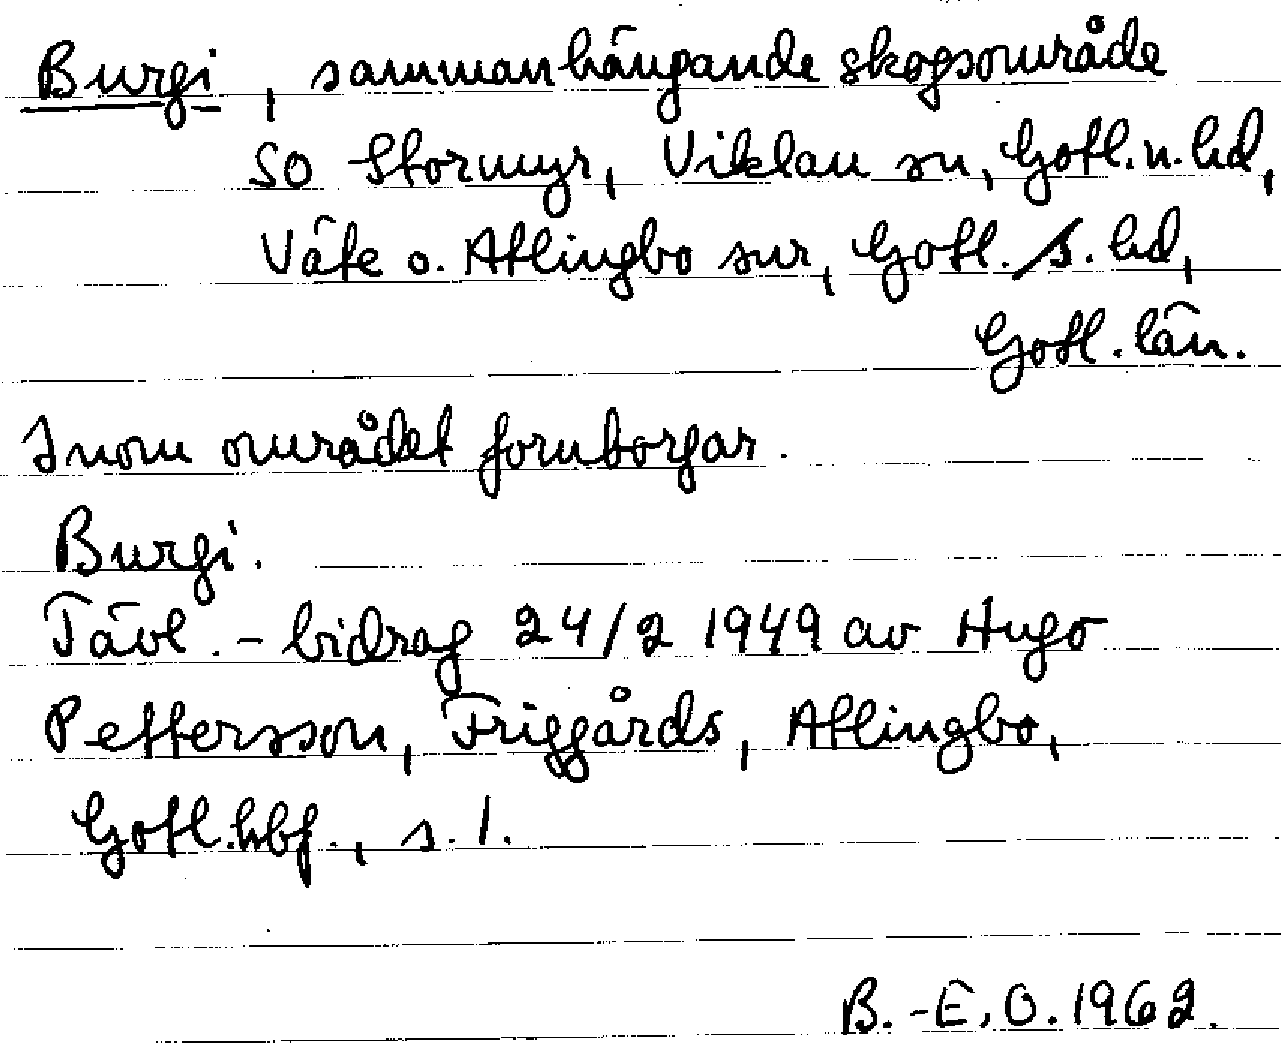 Burgi, sammanhängande skogsområde
SO Stormyr, Viklau sn, Gotl. n. hd,
Väte o. Atlingbo snr, Gotl. s. hd,
Gotl. län.
Inom området fornborgar.
Burgi.
Tävl. - bidrag 24/2 1949 av Hugo
Pettersson, Friggårds, Atlingbo,
Gotl. hbf., s. 1.
B. -E, O. 1962.